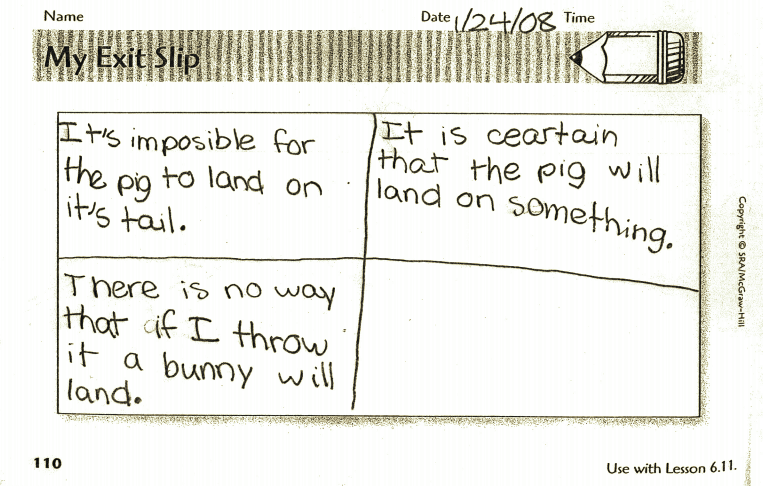 Name
Date 1/24/08 Time
My Exit Slip
It's imposible for
the pig to land on
it's tail.
It is ceartain
that the pig will
land on something.
There is no way
that if I throw
it a bunny will
land.
Copyright © SRA/McGraw-Hill
110
Use with Lesson 6.11.